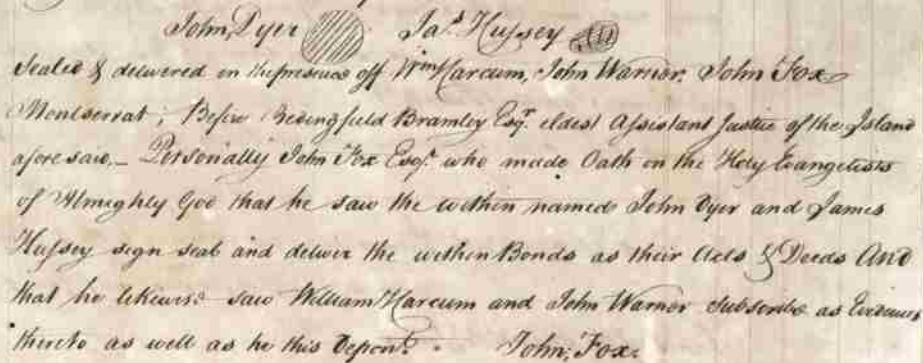 John Dyer Jas. Hussey
Sealed & delivered in the presence off Wm. Harcum, John Warner, John Fox
Montserrat; Before Bedingfield Bramley Esqr. eldest Assistant Justice of the Island
aforesaid,— Personally John Fox Esqr. who made Oath on the Holy Evangelists
of Almighty God that he saw the within named John Dyer and James
Hussey sign seal and deliver the within Bonds as their Acts & Deeds And
that he likewise saw William Harcum and John Warner subscribe as Evidences
thereto as well as he this Depont. John, Fox.